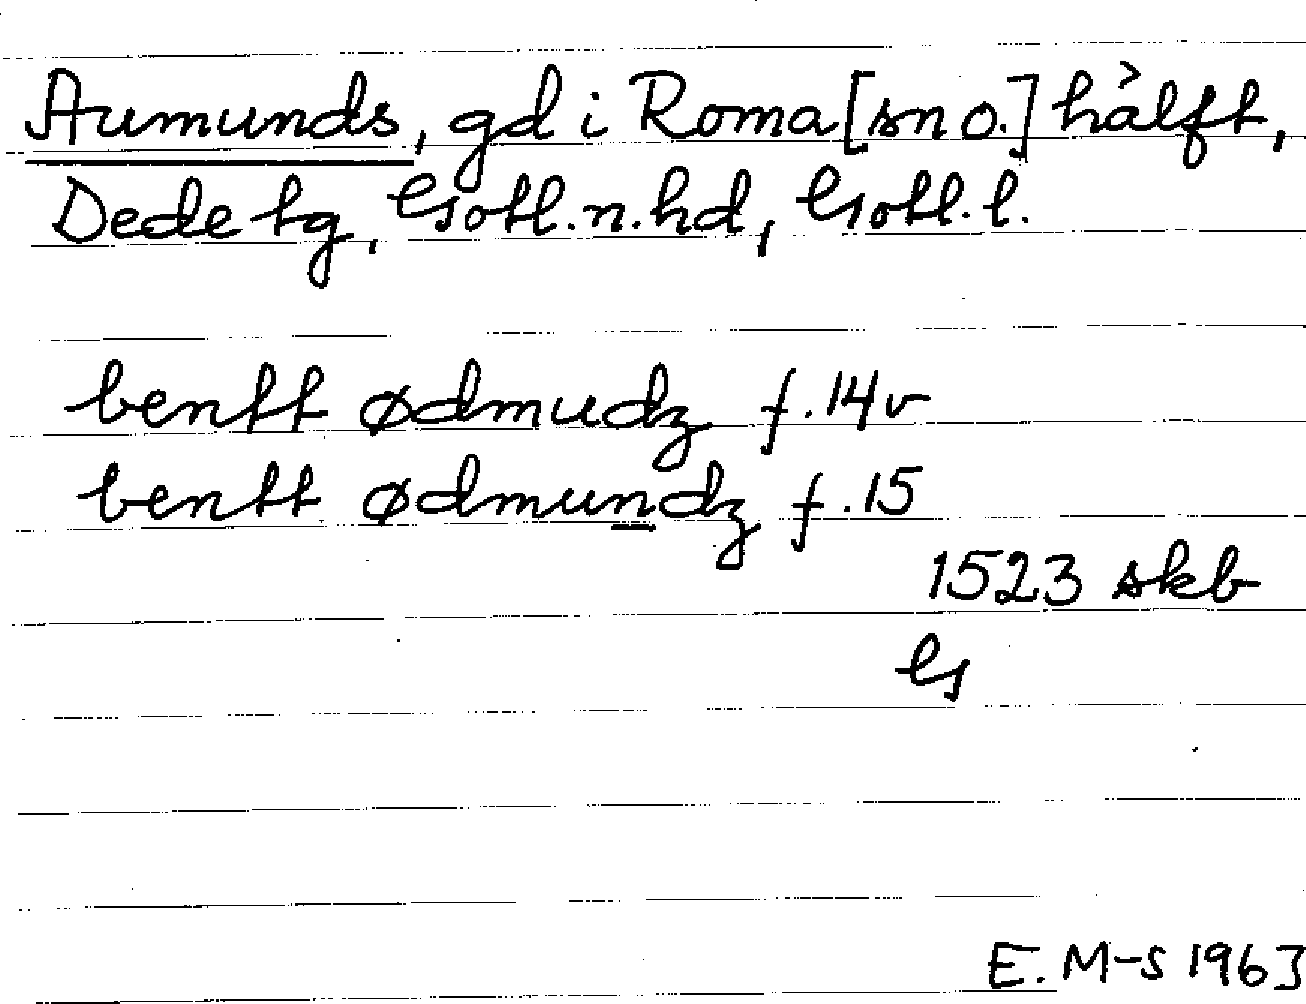 Aumunds, gd i Roma [sn o.] hälft,
Dede tg, Gotl. n. hd, Gotl. l.
bentt ødmudz f. 14v
bentt ødmundz f. 15
1523 skb
G
E. M-S 1963